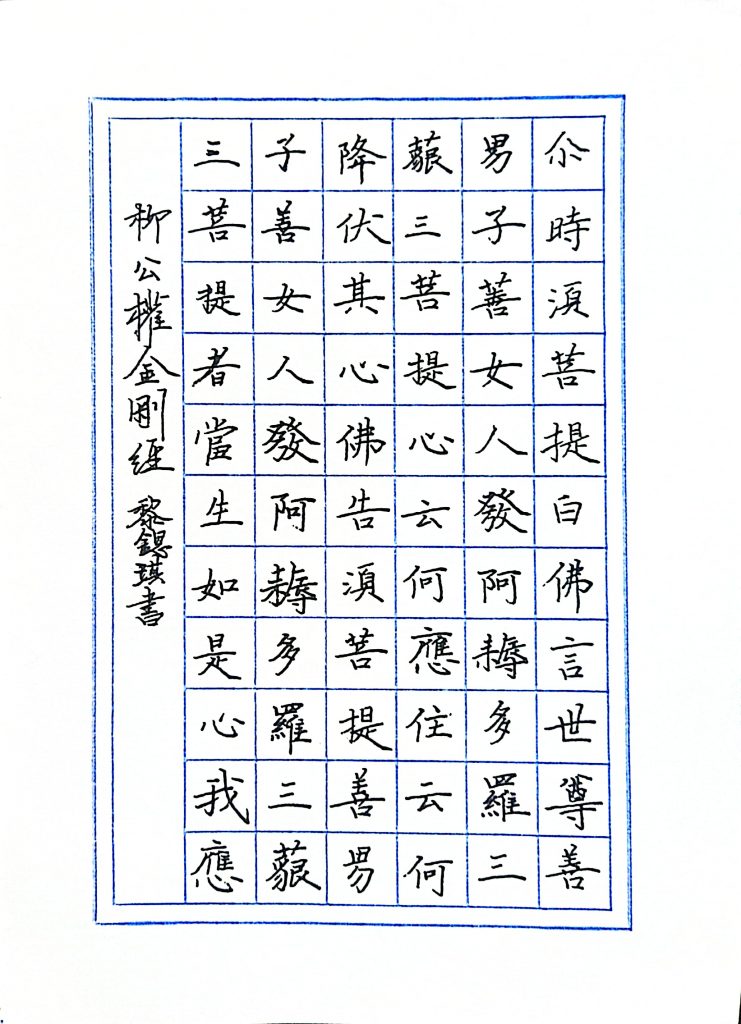 尒時湏菩提白佛言世尊善
男子善女人發阿耨多羅三
藐三菩提心云何應住云何
降伏其心佛告湏菩提善男
子善女人發阿耨多羅三藐
三菩提者當生如是心我應
柳公權金剛經 黎鍶琪書